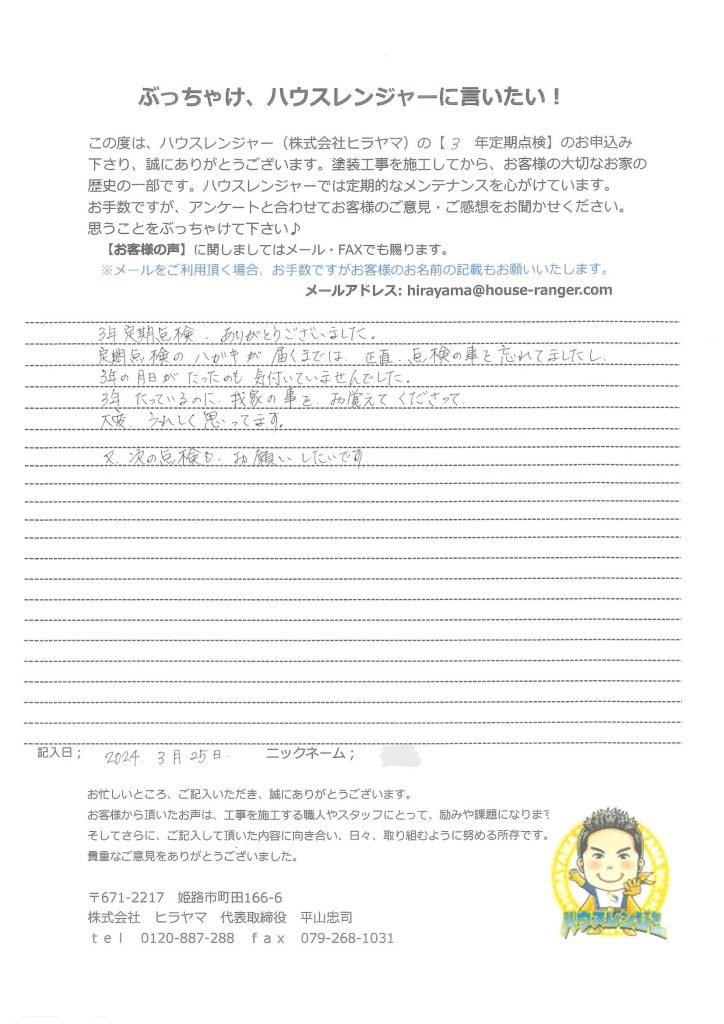 ぶっちゃけ、ハウスレンジャーに言いたい!
この度は、ハウスレンジャー（株式会社ヒラヤマ）の【 3 年定期点検】のお申込み
下さり、誠にありがとうございます。塗装工事を施工してから、お客様の大切なお家の
歴史の一部です。ハウスレンジャーでは定期的なメンテナンスを心がけています。
お手数ですが、アンケートと合わせてお客様のご意見・ご感想をお聞かせください。
思うことをぶっちゃけて下さい♪
【お客様の声】に関しましてはメール・FAXでも賜ります。
※メールをご利用頂く場合、お手数ですがお客様のお名前の記載もお願いいたします。
メールアドレス: hirayama@house-ranger.com
3年定期点検、ありがとうございました。
定期点検のハガキが届くまでは、正直、点検の事を忘れてましたし、
3年の月日がたったのも気付いていませんでした。
3年たっているのに、我家の事を、お覚えてくださって、
大変、うれしく思ってます。
又、次の点検も、お願いしたいです。
記入日； 2024. 3月25日. ニックネーム；
お忙しいところ、ご記入いただき、誠にありがとうございます。
お客様から頂いたお声は、工事を施工する職人やスタッフにとって、励みや課題になります
そしてさらに、ご記入して頂いた内容に向き合い、日々、取り組むように努める所存です。
貴重なご意見をありがとうございました。
〒671-2217 姫路市町田166-6
株式会社 ヒラヤマ 代表取締役 平山忠司
ｔｅｌ 0120-887-288 ｆａｘ 079-268-1031
ハウスレンジャー